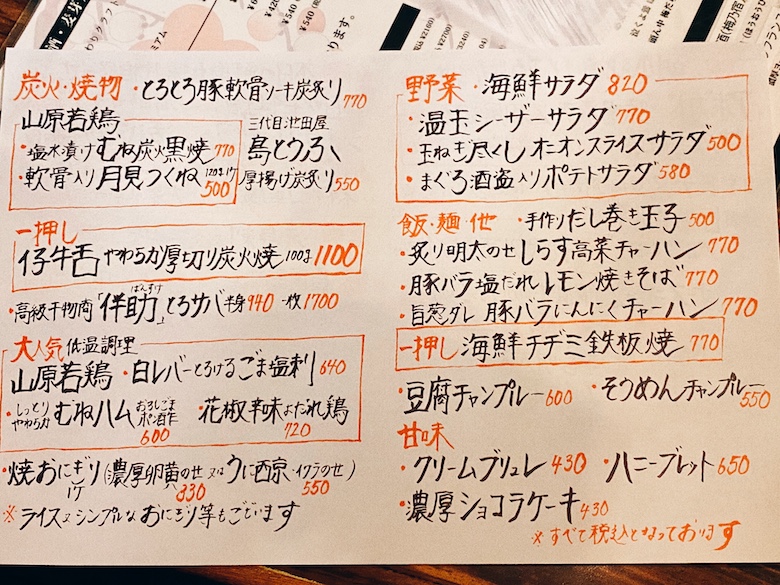 炭火・焼物 ・とろとろ豚軟骨ソーキ炭炙り 770
山原若鶏
・塩水漬けむね炭火黒焼 770
・軟骨入り月見つくね 120g 1ケ 500
三代目池田屋
島とうふ
厚揚げ炭炙り 550
一押し
仔牛舌やわらか厚切り炭火焼 100g 1100
・高級干物商「伴助」とろサバ 半身 940 一枚 1700
ばんすけ
大人気 低温調理
山原若鶏 ・白レバーとろけるごま塩刺 640
・しっとりやわらかむねハム おろしごまポン酢 600
・花椒辛味よだれ鶏 720
・焼おにぎり(濃厚卵黄のせ 又は うに西京・イクラのせ)
1ケ 330 550
※ライス又シンプルなおにぎり等もございます
野菜 ・海鮮サラダ 820
・温玉シーザーサラダ 770
・玉ねぎ尽くしオニオンスライスサラダ 500
・まぐろ酒盗入りポテトサラダ 580
飯・麺・他 ・手作りだし巻き玉子 500
・炙り明太のせしらす高菜チャーハン 770
・豚バラ塩だれレモン焼きそば 770
・旨葱ダレ 豚バラにんにくチャーハン 770
一押し 海鮮チヂミ鉄板焼 770
・豆腐チャンプルー 600 ・そうめんチャンプルー 550
甘味
・クリームブリュレ 430 ・ハニーブレット 650
・濃厚ショコラケーキ 430
※すべて税込となっております